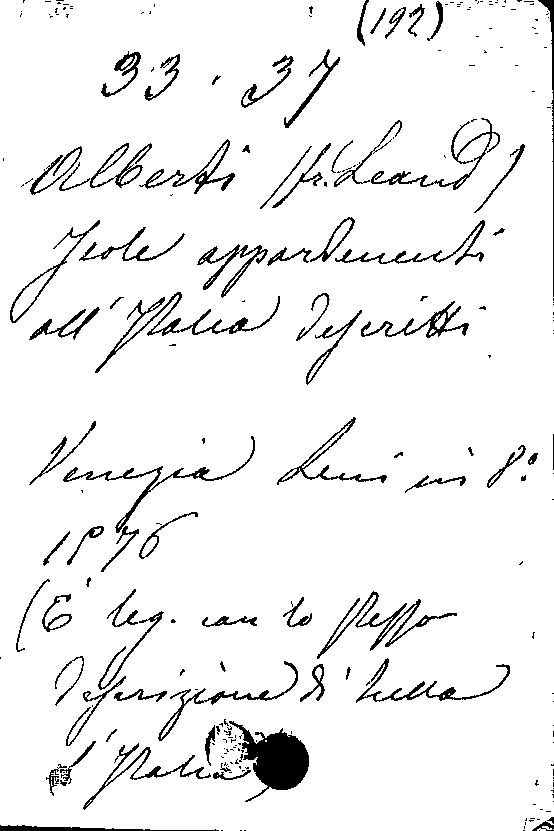 (192)
33. 37
Alberti (fr. Leand)
Isole appartenenti
all' Italia descritti
Venezia in 8º
1576
(È leg. con lo stesso
descrizione di tutta
l'Italia)